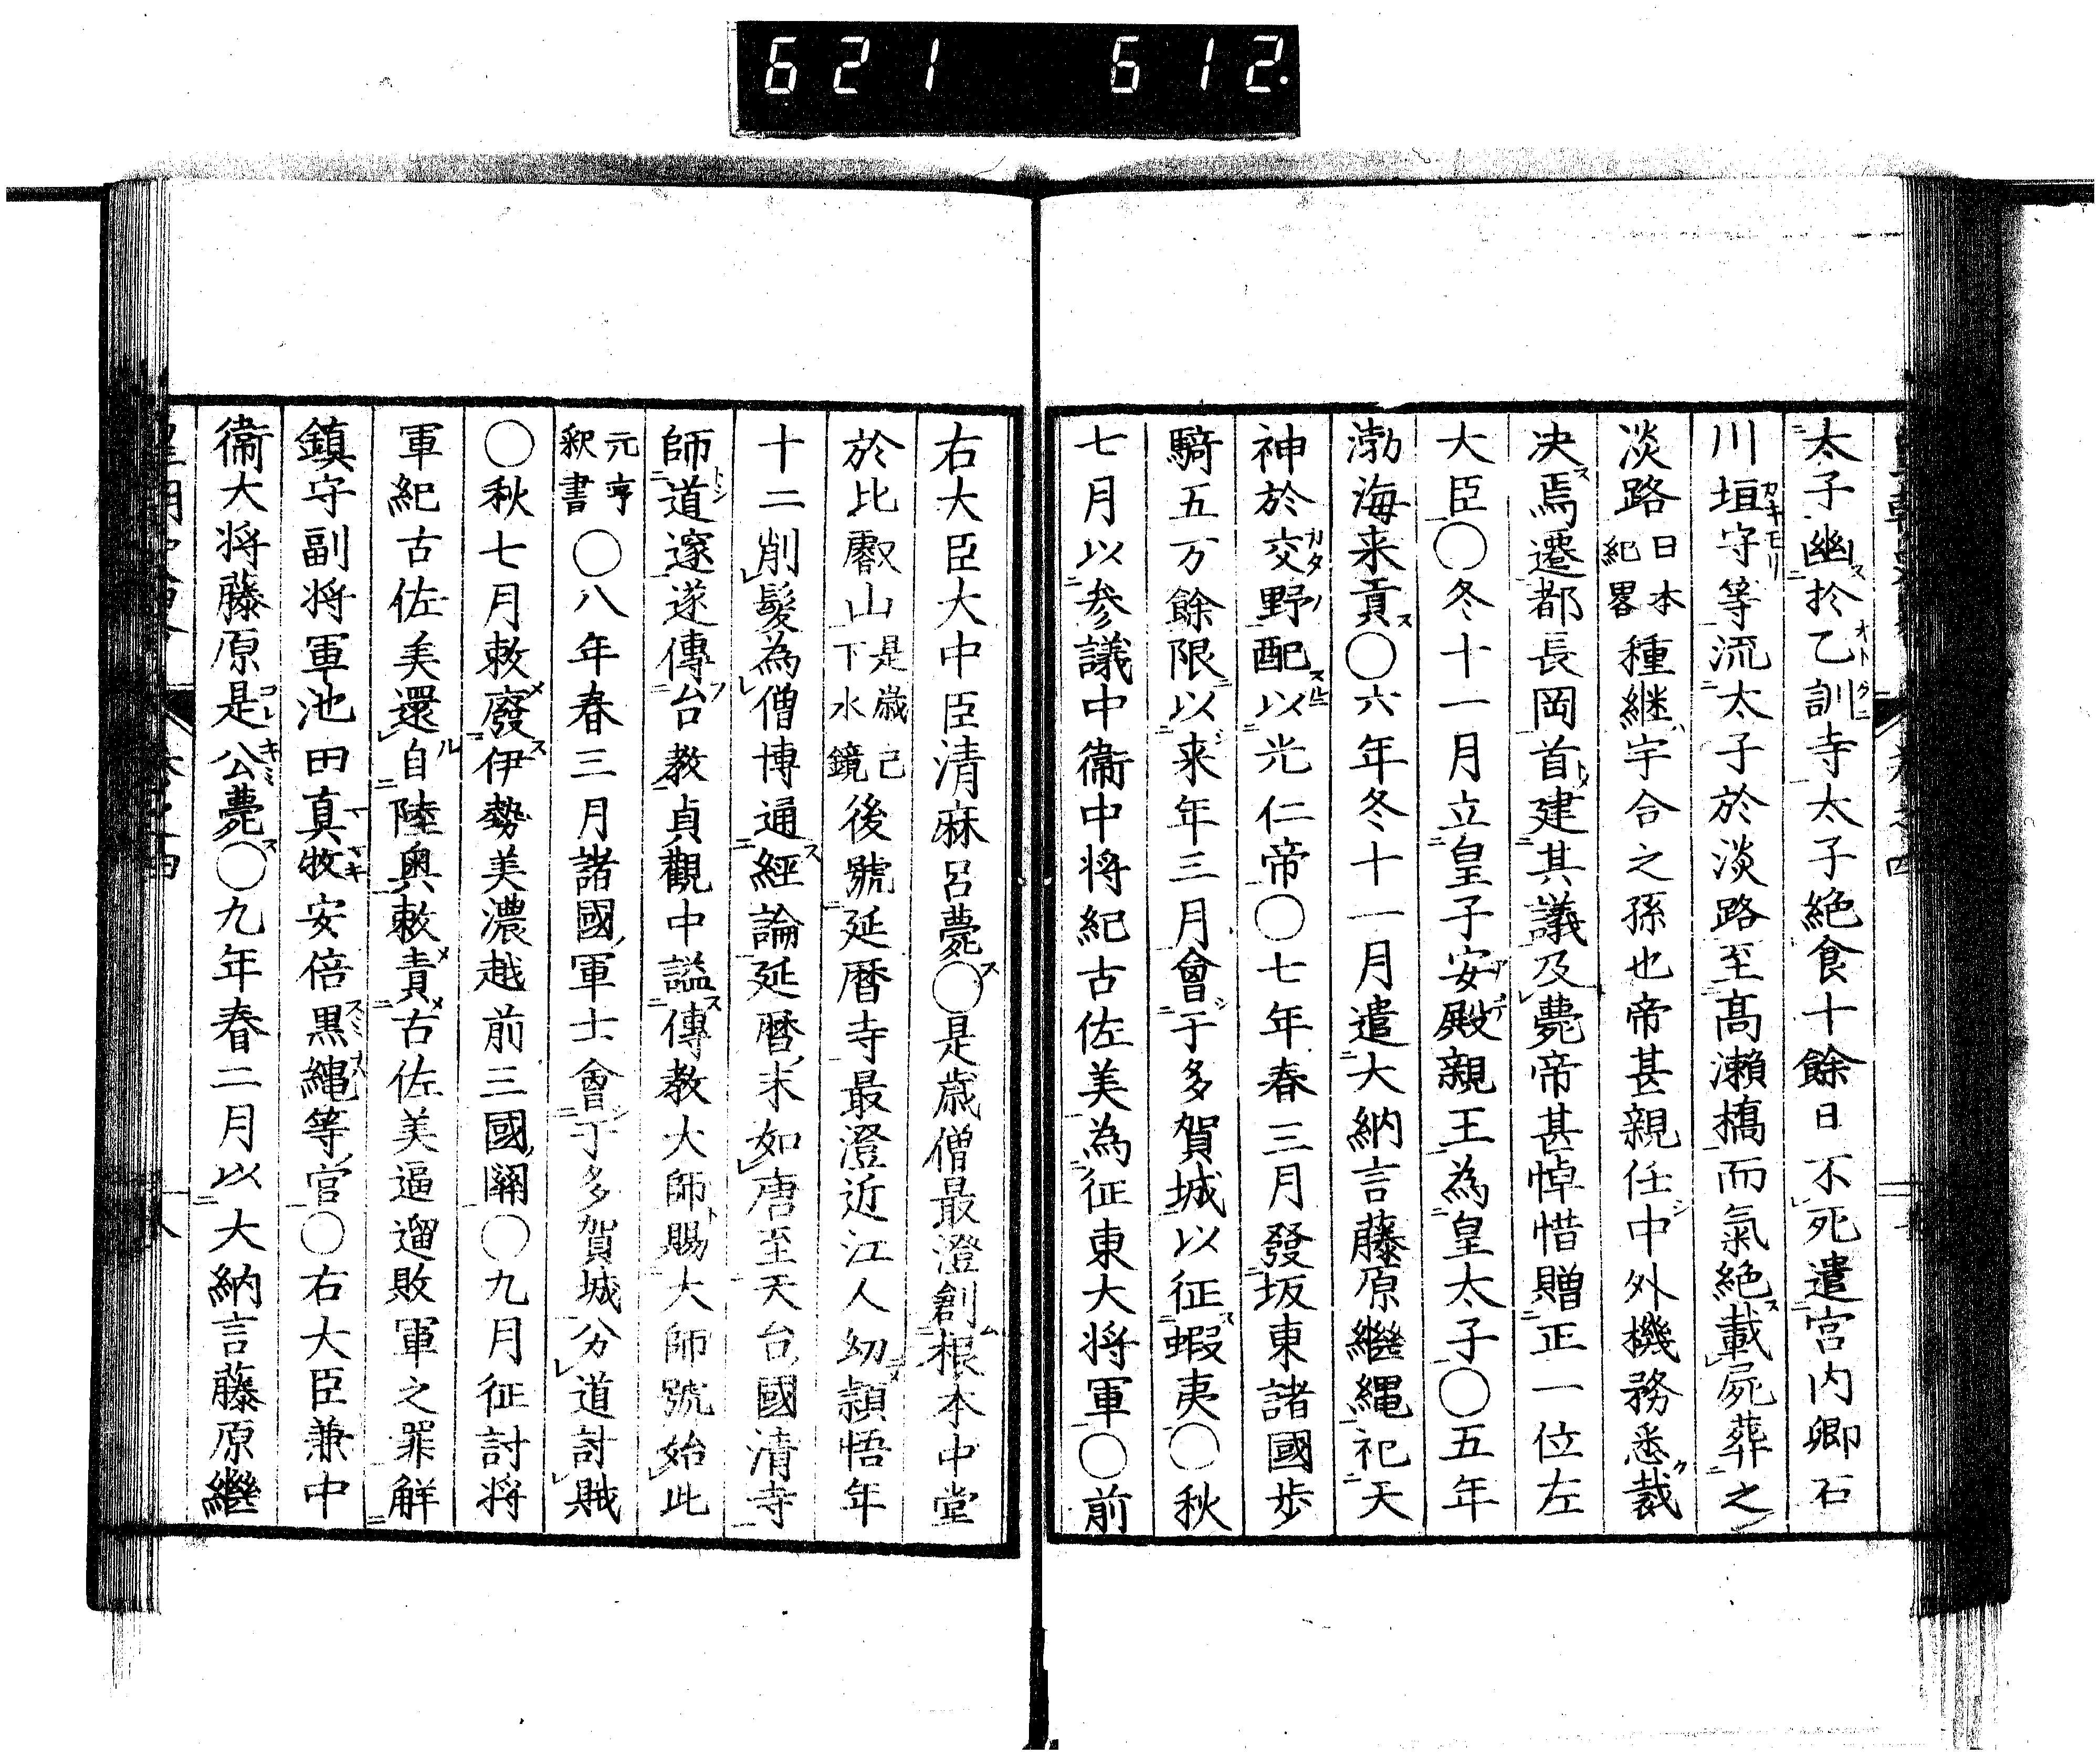 621 612.
太子幽於乙訓寺太子絶食十餘日不死遣宮内卿石
川垣守等流太子於淡路至髙瀬橋而氣絶載屍葬之
淡路日本紀畧種継宇合之孫也帝甚親任中外機務悉裁
决焉遷都長岡首建其議及薨帝甚悼惜贈正一位左
大臣〇冬十一月立皇子安殿親王為皇太子〇五年
渤海来貢〇六年冬十一月遣大納言藤原繼縄祀天
神於交野配以光仁帝〇七年春三月發坂東諸國歩
騎五万餘限以来年三月會于多賀城以征蝦夷〇秋
七月以参議中衞中将紀古佐美為征東大将軍〇前
右大臣大中臣清麻呂薨〇是歳僧最澄創根本中堂
於比叡山是歳己下水鏡後號延暦寺最澄近江人幼頴悟年
十二削髮為僧博通經論延暦末如唐至天台國清寺
師道邃遂傳台教貞觀中謚傳教大師賜大師號始此
元亨釈書〇八年春三月諸國軍士會于多賀城分道討賊
〇秋七月敕廢伊勢美濃越前三國關〇九月征討将
軍紀古佐美還自陸奥敕責古佐美逼遛敗軍之罪解
鎮守副将軍池田真牧安倍黒縄等官〇右大臣兼中
衞大将藤原是公薨〇九年春二月以大納言藤原繼